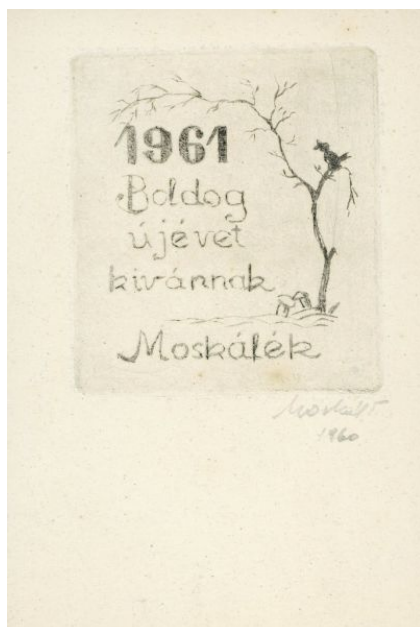 1961
Boldog
újévet
kivánnak
Moskálék
1960